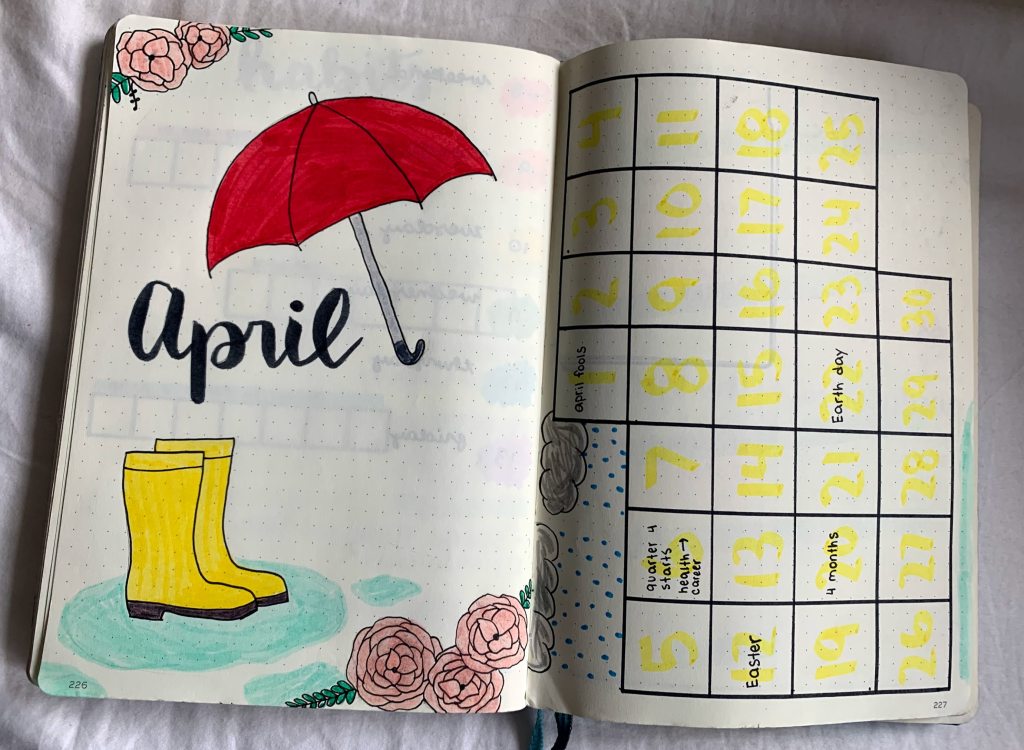 April
226
1
april fools
2
3
4
5
6
quarter 4
starts
health →
career
7
8
9
10
11
12
Easter
13
14
15
16
17
18
19
20
4 months
21
22
Earth day
23
24
25
26
27
28
29
30
227